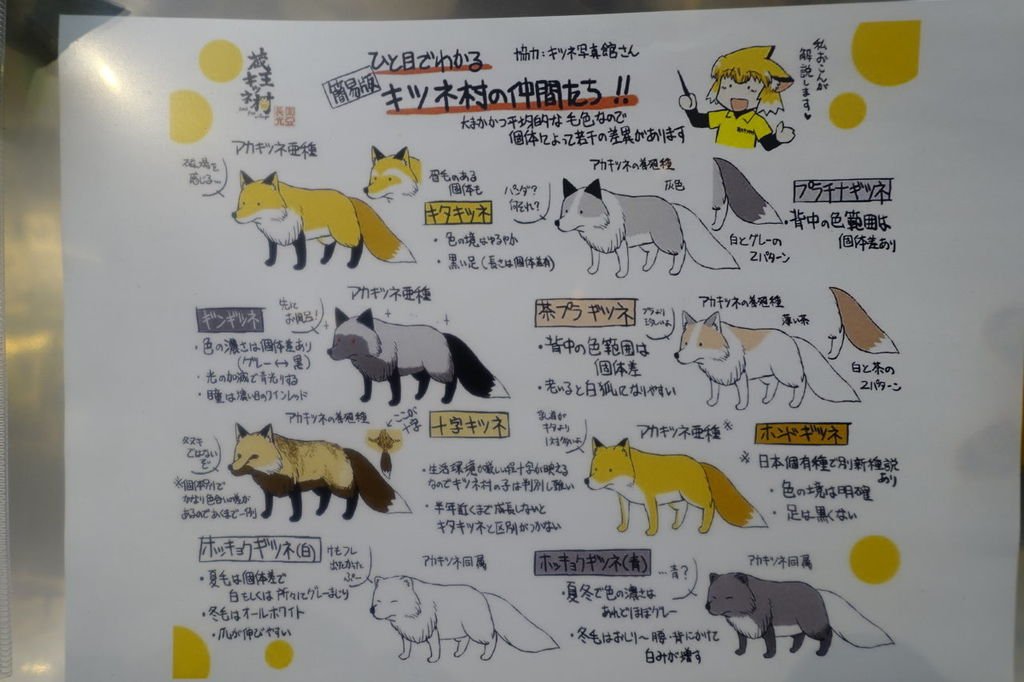 蔵王
キツネ村
ひと目でわかる
協力：キツネ写真館さん
簡易版
キツネ村の仲間たち!!
大まかかつ平均的な毛色なので
個体によって若干の差異があります
私おこんが
解説します♥
アカギツネ亜種
磁場を
感じる…
眉毛のある
個体も
キタキツネ
・色の境はゆるやか
・黒い足(長さは個体差有)
アカギツネの養殖種
灰色
パンダ?
何それ?
プラチナギツネ
・背中の色範囲は
個体差あり
白とグレーの
2パターン
アカギツネ亜種
ギンギツネ
・色の濃さは個体差あり
(グレー↔黒)
・光の加減で青光りする
・瞳は濃い目のワインレッド
アカギツネの養殖種
薄い茶
茶プラギツネ
・背中の色範囲は
個体差
・老いると白狐になりやすい
白と茶の
2パターン
アカギツネの養殖種
ここが
十字
十字キツネ
タヌキ
ではない
ぞ
※個体別で
かなり色合いの差が
あるのであくまで一例
・生活環境が厳しい程十字が映える
なのでキツネ村の子は判別し難い
・半年近くまで成長しないと
キタキツネと区別がつかない
アカギツネ亜種※
乳首が
キタより
1対多いよ
ホンドギツネ
※日本固有種で別新種説
あり
・色の境は明確
・足は黒くない
ホッキョクギツネ(白)
・夏毛は個体差で
白もしくは所々にグレーまじり
・冬毛はオールホワイト
・爪が伸びやすい
アカギツネ同属
ホッキョクギツネ(青)
…青?
アカギツネ同属
・夏冬で色の濃さは
あれどほぼグレー
・冬毛はおしり〜腰・背にかけて
白みが増す